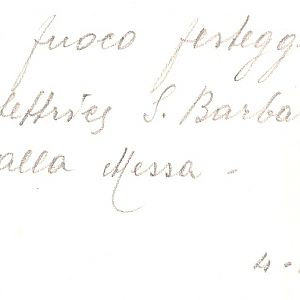 fuoco festegg
S. Barba
alla Messa -
4 -